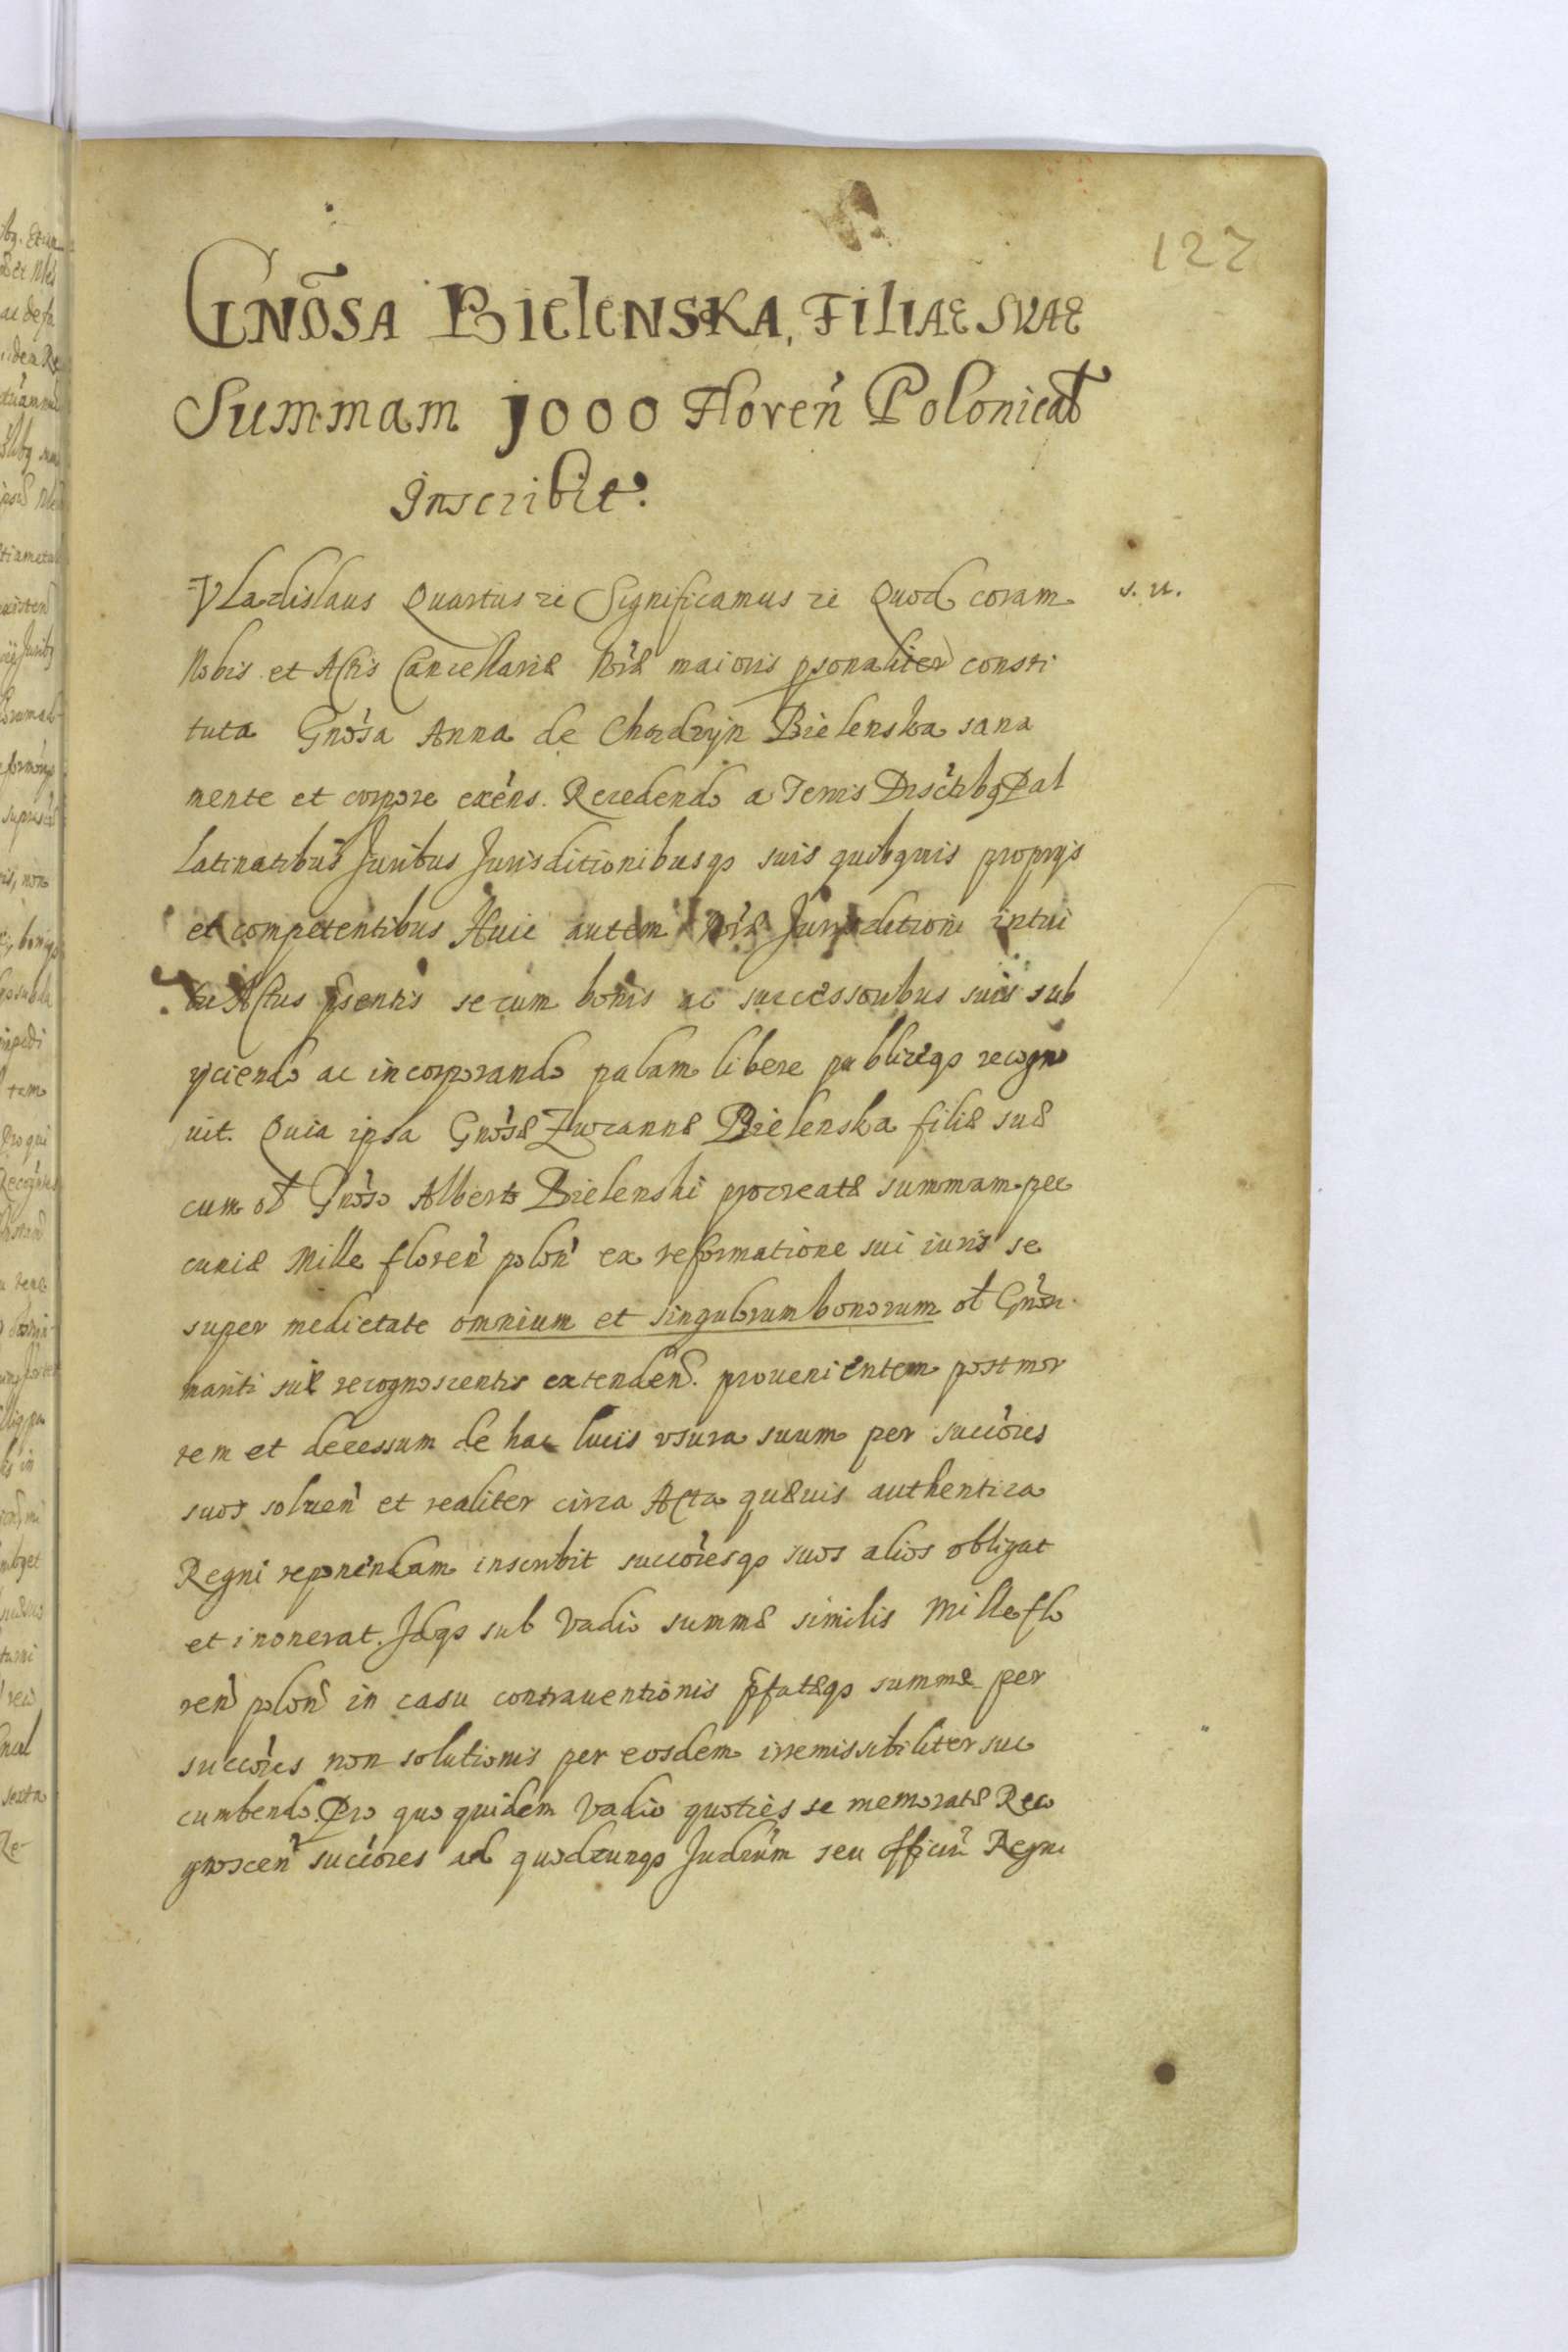 127
GNõSA BielenSKA, FiliAE SVAE
Summam 1000 Floren̉ Polonical̃
Inscribit.
Vladislaus Quartus rc Significamus rc Quod coram s. n.
Nobis et Actis Cancellariæ Nr̃æ maioris psonaliter consti
tuta Gnõsa Anna de Bielenska sana
mente et corpore exẽns. Recedendo a Terris Districtibq Pal
latinatibus Juribus Jurisditionibusqꝫ suis quibqvis proprijs
et competentibus Huic autem nr̃æ Jurisditioni intui
tu Actus pñsentis se cum bonis ac successoribus suis sub
yciendo ac incorporando palam libere publiceqꝫ recogno
uit. Quia ipsa Gnõsæ Zuzannæ Bielenska filiæ suæ
cum ol̃ Gnõso Alberto Bielenski procreatæ summam pec
cuniæ Mille floreñ poloñ ex reformatione sui iuris se
super medietate omnium et singulorum bonorum ol̃ Gnõsi
mariti sui recognoscentis extendeñ. prouenientem post mor
tem et decessum de hac lucis vsura suum per succõres
suos solueñ et realiter circa Acta quæuis authentica
Regni reponendam inscribit succõresqꝫ suos alios obligat
et inonerat. Idqꝫ sub Vadio summæ similis Mille flo
reñ poloñ in casu contrauentionis pfatæqꝫ summæ per
succõres non solutionis per eosdem irremissibiliter suc
cumbendo. Pro quo quidem Vadio quoties se memoratæ Reco
gnosceñ succõres ad quodcunqꝫ Judiciũm seu officiũ Regni